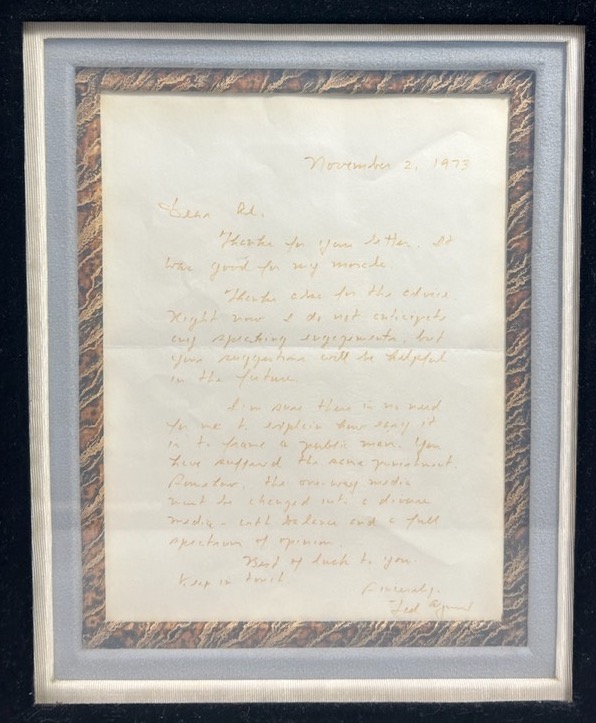 November 2, 1973
Dear
Thanks for your letter. It
was good for my morale.
Thanks also for the advice
Right now I do not anticipate
any speaking engagements, but
your suggestions will be helpful
in the future.
I'm sure there is no need
for me to explain how easy it
is to frame a public man. You
have suffered the same punishment.
the one-way media
must be changed into a diverse
media - with balance and a full
spectrum of opinion.
Best of luck to you.
Keep in touch.
Sincerely,
Ted